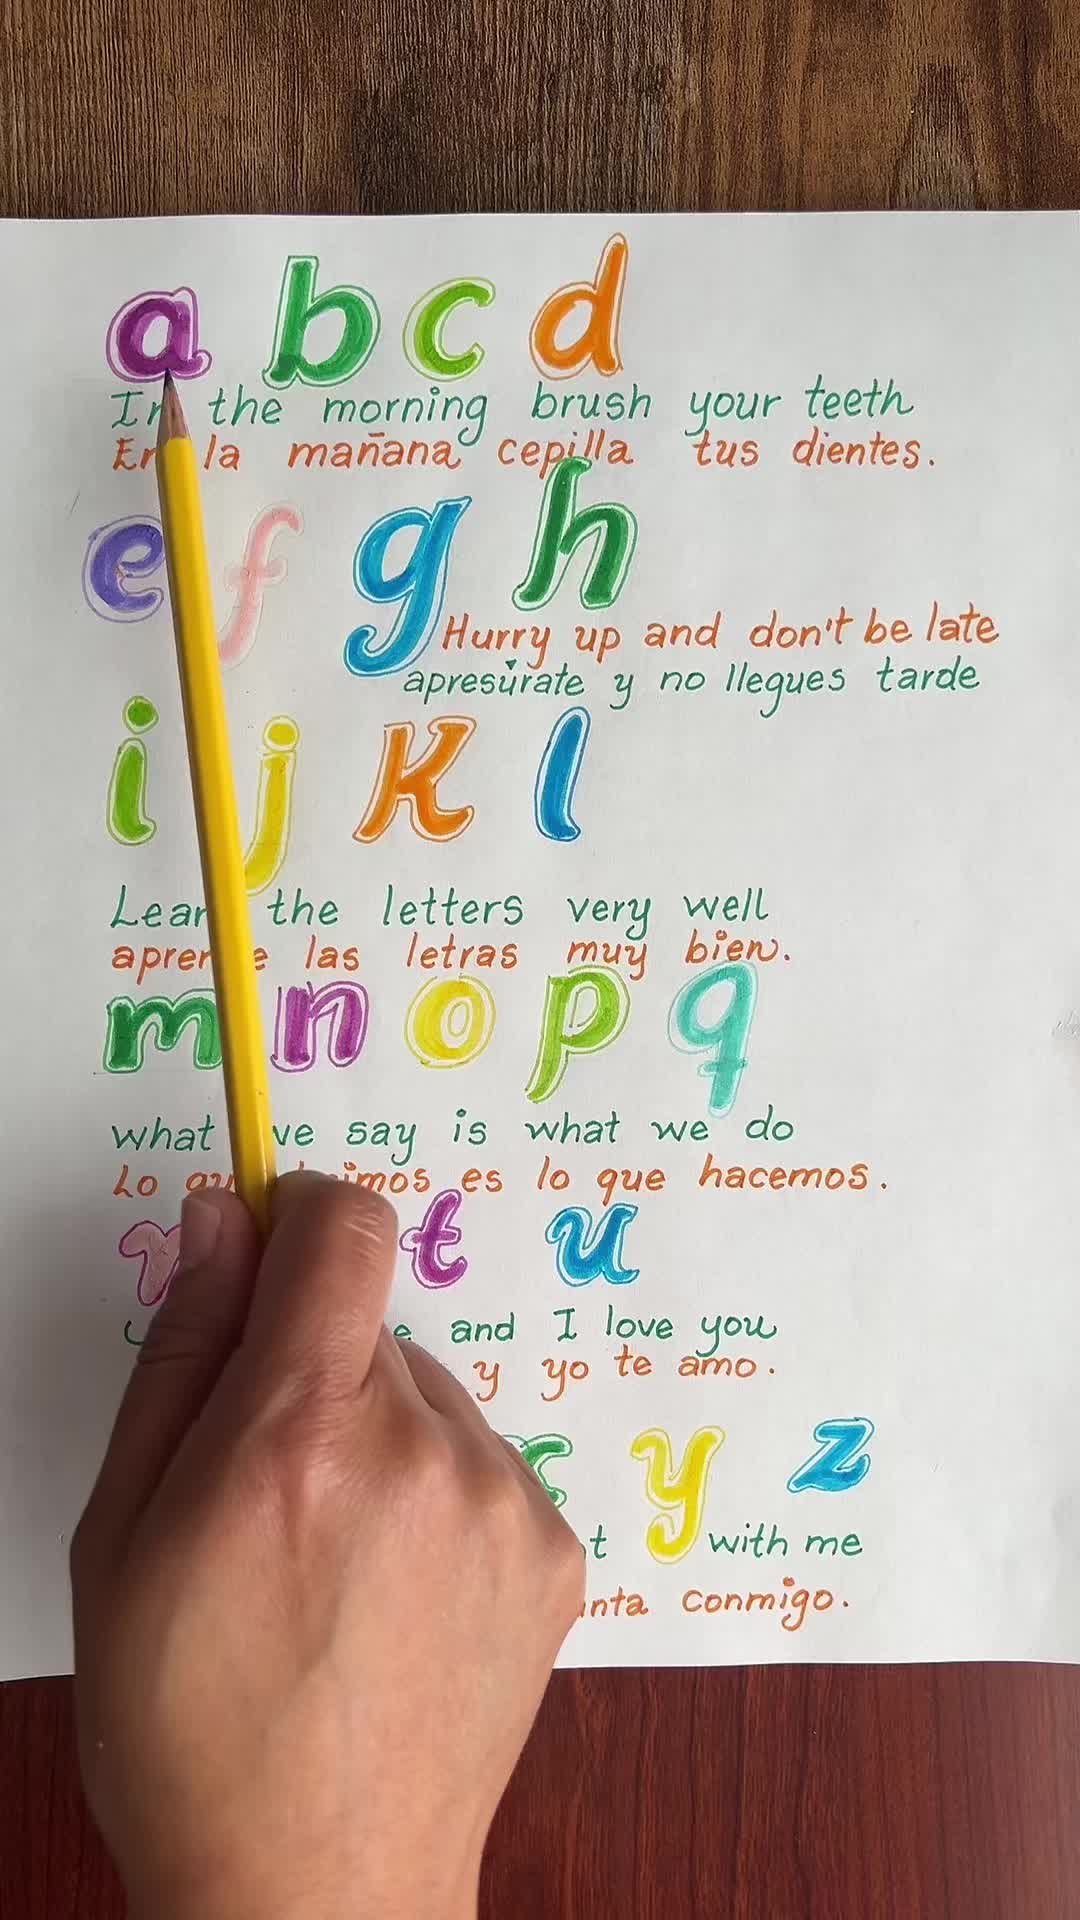 a b c d
In the morning brush your teeth
En la mañana cepilla tus dientes.
e f g h
Hurry up and don't be late
apresúrate y no llegues tarde
i j K l
the letters very well
las letras muy bien.
m n o p q
what say is what we do
Lo es lo que hacemos.
t u
and I love you
y yo te amo.
y z
with me
conmigo.